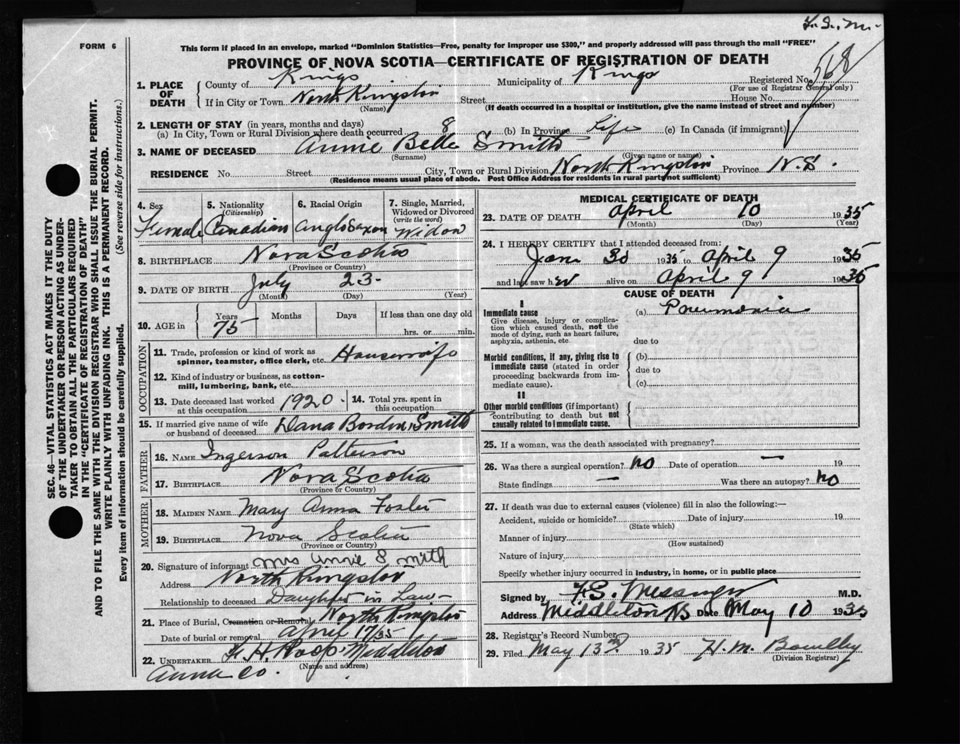 F.S.M.
FORM 6
This form if placed in an envelope, marked "Dominion Statistics—Free, penalty for improper use $300," and properly addressed will pass through the mail "FREE"
PROVINCE OF NOVA SCOTIA—CERTIFICATE OF REGISTRATION OF DEATH
1. PLACE OF DEATH County of Kings Municipality of Kings Registered No. 568
(For use of Registrar General only)
If in City or Town North Kingston Street House No.
(Name) (If death occurred in a hospital or institution, give the name instead of street and number)
2. LENGTH OF STAY (in years, months and days)
(a) In City, Town or Rural Division where death occurred 8 (b) In Province Life (c) In Canada (if immigrant)
3. NAME OF DECEASED Annie Belle Smith
(Surname) (Given name or names)
RESIDENCE No. Street City, Town or Rural Division North Kingston Province N.S.
(Residence means usual place of abode. Post Office Address for residents in rural parts not sufficient)
4. Sex 5. Nationality (Citizenship) 6. Racial Origin 7. Single, Married, Widowed or Divorced (write the word)
Female Canadian Anglo Saxon Widow
8. BIRTHPLACE Nova Scotia
(Province or Country)
9. DATE OF BIRTH July 23-
(Month) (Day) (Year)
10. AGE in Years Months Days If less than one day old
75 hrs. or min.
OCCUPATION
11. Trade, profession or kind of work as spinner, teamster, office clerk, etc. Housewife
12. Kind of industry or business, as cotton-mill, lumbering, bank, etc.
13. Date deceased last worked at this occupation 1920- 14. Total yrs. spent in this occupation
15. If married give name of wife or husband of deceased Dana Borden Smith
FATHER
16. NAME Ingerson Patterson
17. BIRTHPLACE Nova Scotia
(Province or Country)
MOTHER
18. MAIDEN NAME Mary Anna Foster
19. BIRTHPLACE Nova Scotia
(Province or Country)
20. Signature of informant Mrs Annie Smith
Address North Kingston
Relationship to deceased Daughter in Law-
21. Place of Burial, Cremation or Removal North Kingston
Date of burial or removal April 12/35
22. UNDERTAKER F. H. Roop, Middleton
(Name and address)
Anna Co.
MEDICAL CERTIFICATE OF DEATH
23. DATE OF DEATH April 10 1935
(Month) (Day) (Year)
24. I HEREBY CERTIFY that I attended deceased from:
Jan 30 1935 to April 9 1935
and last saw her alive on April 9 1935
CAUSE OF DEATH
I
Immediate cause (a) Pneumonia
Give disease, injury or complication which caused death, not the mode of dying, such as heart failure, asphyxia, asthenia, etc.
due to
Morbid conditions, if any, giving rise to immediate cause (stated in order proceeding backwards from immediate cause).
(b)
due to
(c)
II
Other morbid conditions (if important) contributing to death but not causally related to immediate cause.
25. If a woman, was the death associated with pregnancy? —
26. Was there a surgical operation? no Date of operation — 19
State findings — Was there an autopsy? no
27. If death was due to external causes (violence) fill in also the following:
Accident, suicide or homicide? Date of injury 19
(State which)
Manner of injury
(How sustained)
Nature of injury
Specify whether injury occurred in industry, in home, or in public place
Signed by F.S. Messenger M.D.
Address Middleton NS Date May 10 1935
28. Registrar's Record Number
29. Filed May 13 1935 H. M.
(Division Registrar)
SEC. 46—VITAL STATISTICS ACT MAKES IT THE DUTY
OF THE UNDERTAKER OR PERSON ACTING AS UNDER-
TAKER TO OBTAIN ALL THE PARTICULARS REQUIRED
IN THE "CERTIFICATE OF REGISTRATION OF DEATH"
AND TO FILE THE SAME WITH THE DIVISION REGISTRAR WHO SHALL ISSUE THE BURIAL PERMIT.
WRITE PLAINLY WITH UNFADING INK. THIS IS A PERMANENT RECORD.
Every item of information should be carefully supplied. (See reverse side for instructions.)